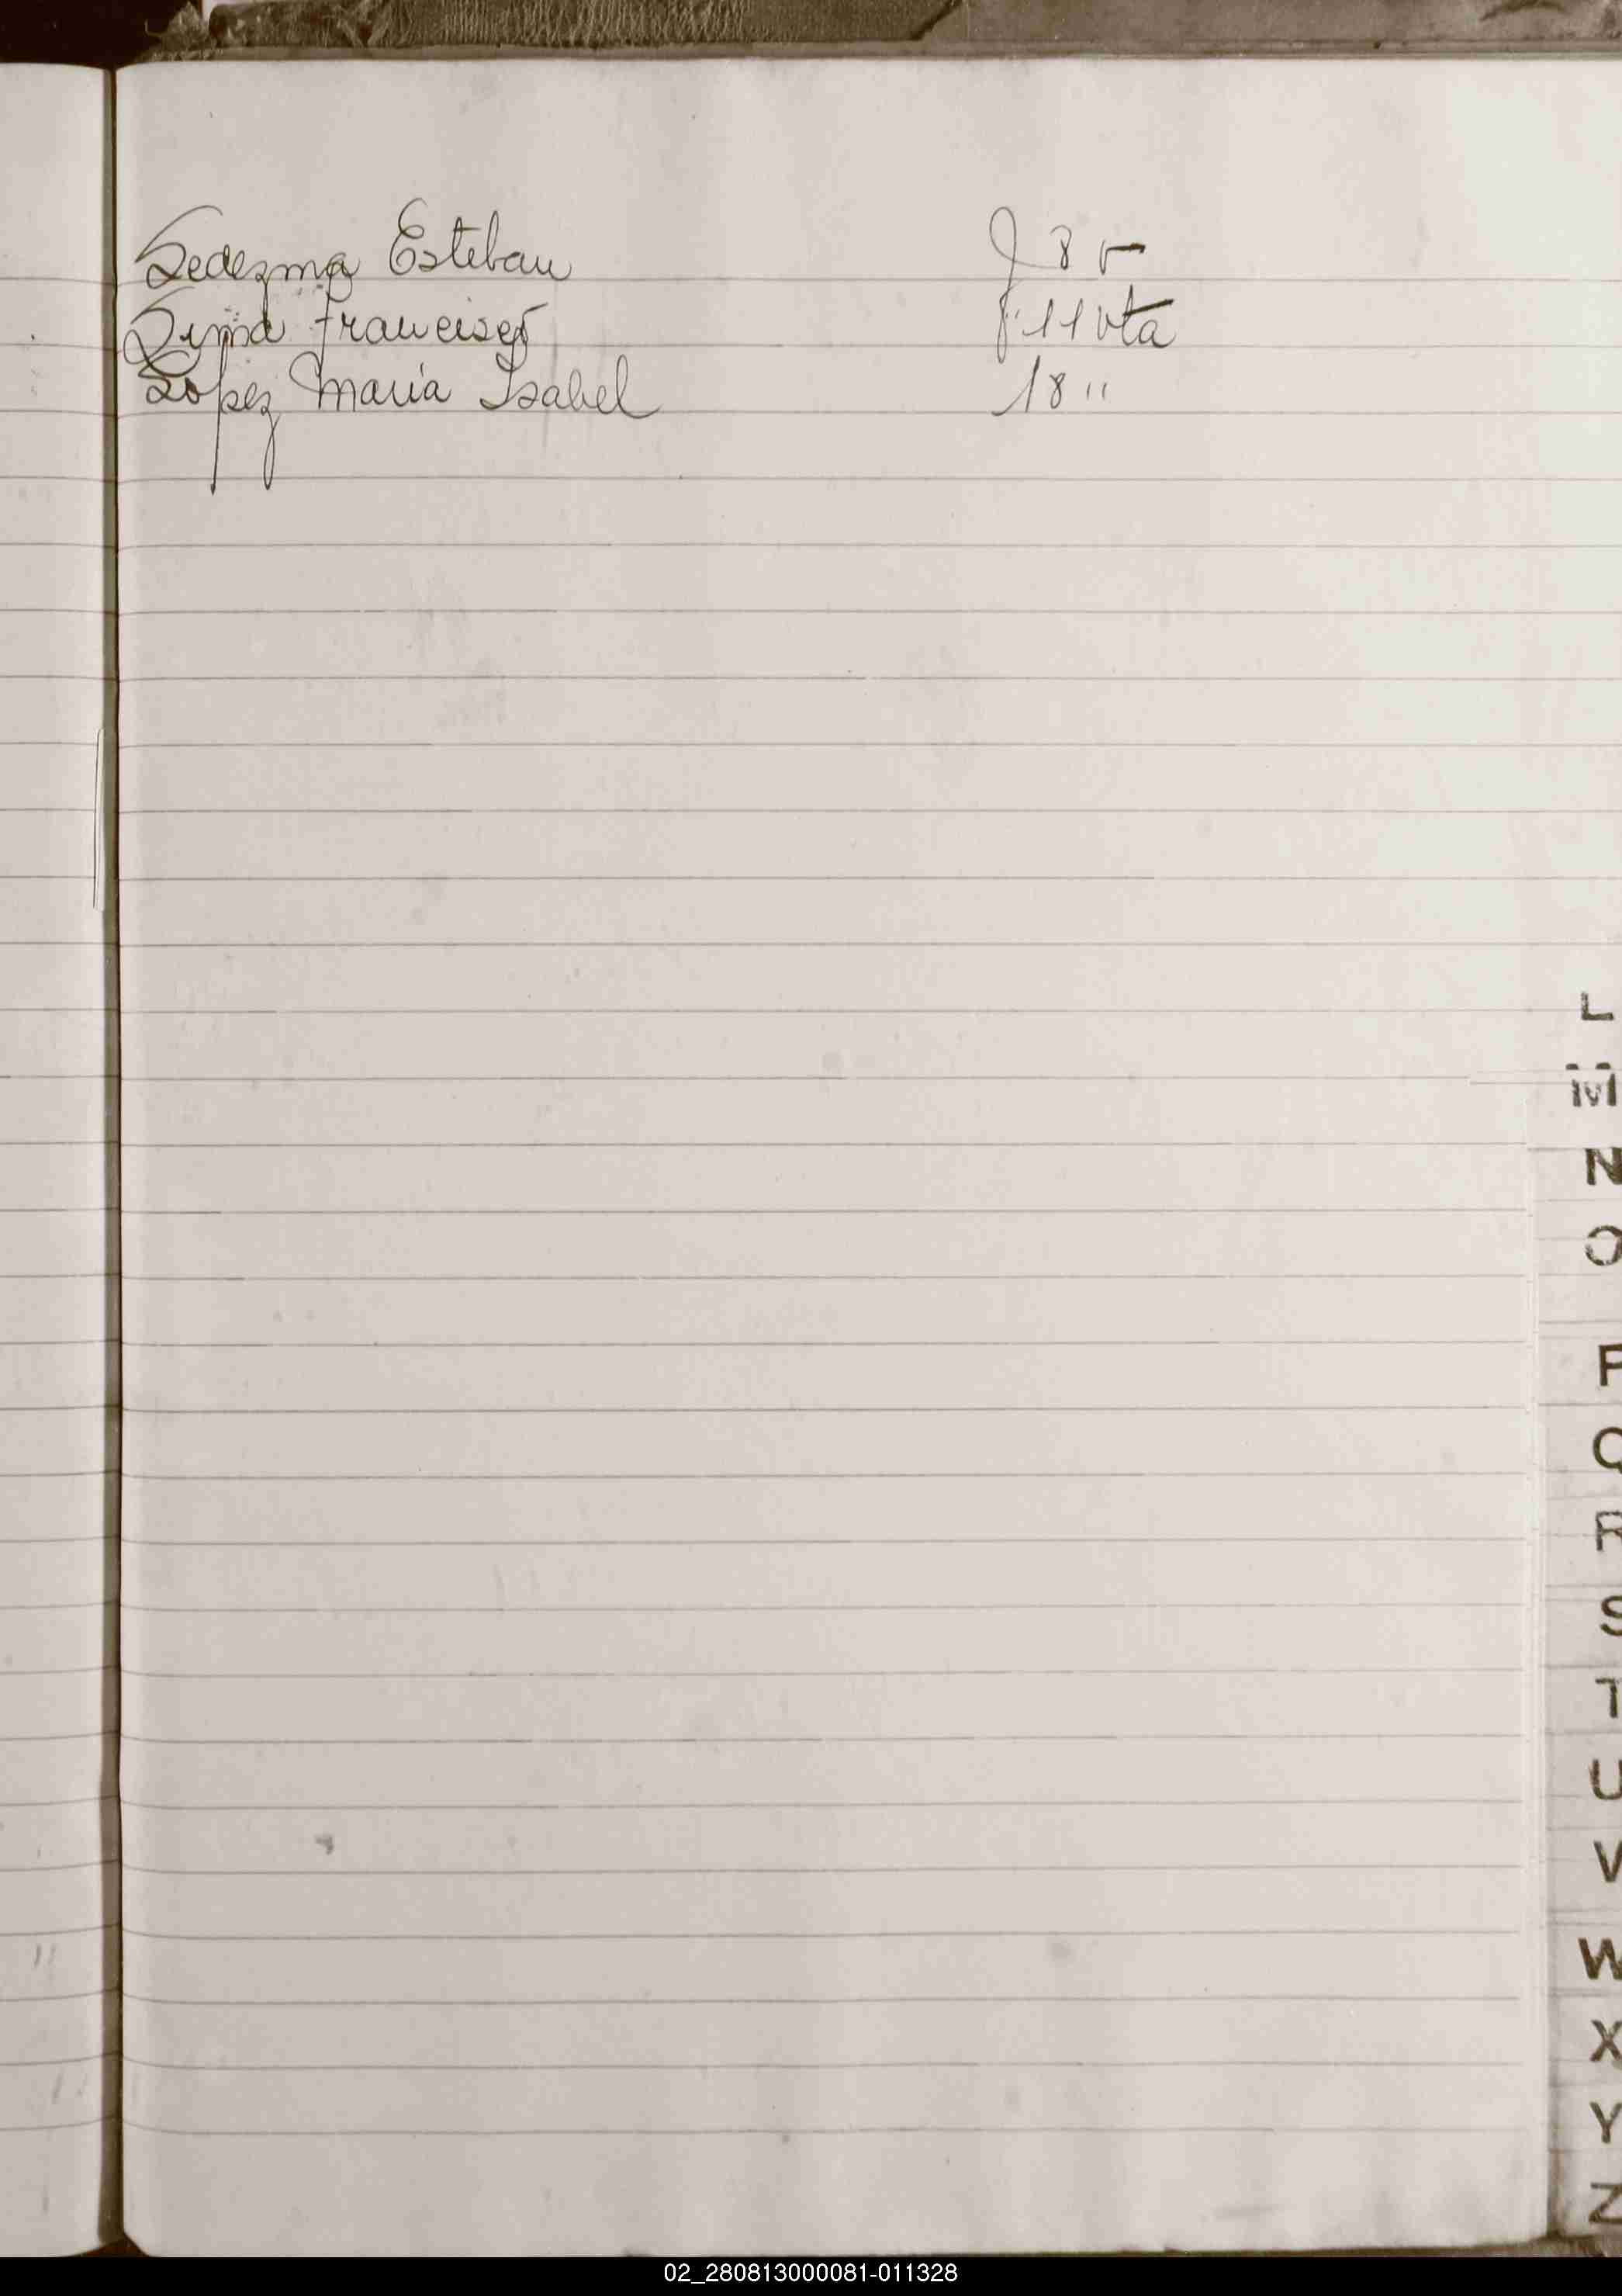 Ledezma Esteban f 8 v
Lima Francisco f 11 vta
Lopez Maria Isabel 18 "
L
M
N
O
P
Q
R
S
T
U
V
W
X
Y
Z
02_280813000081-011328